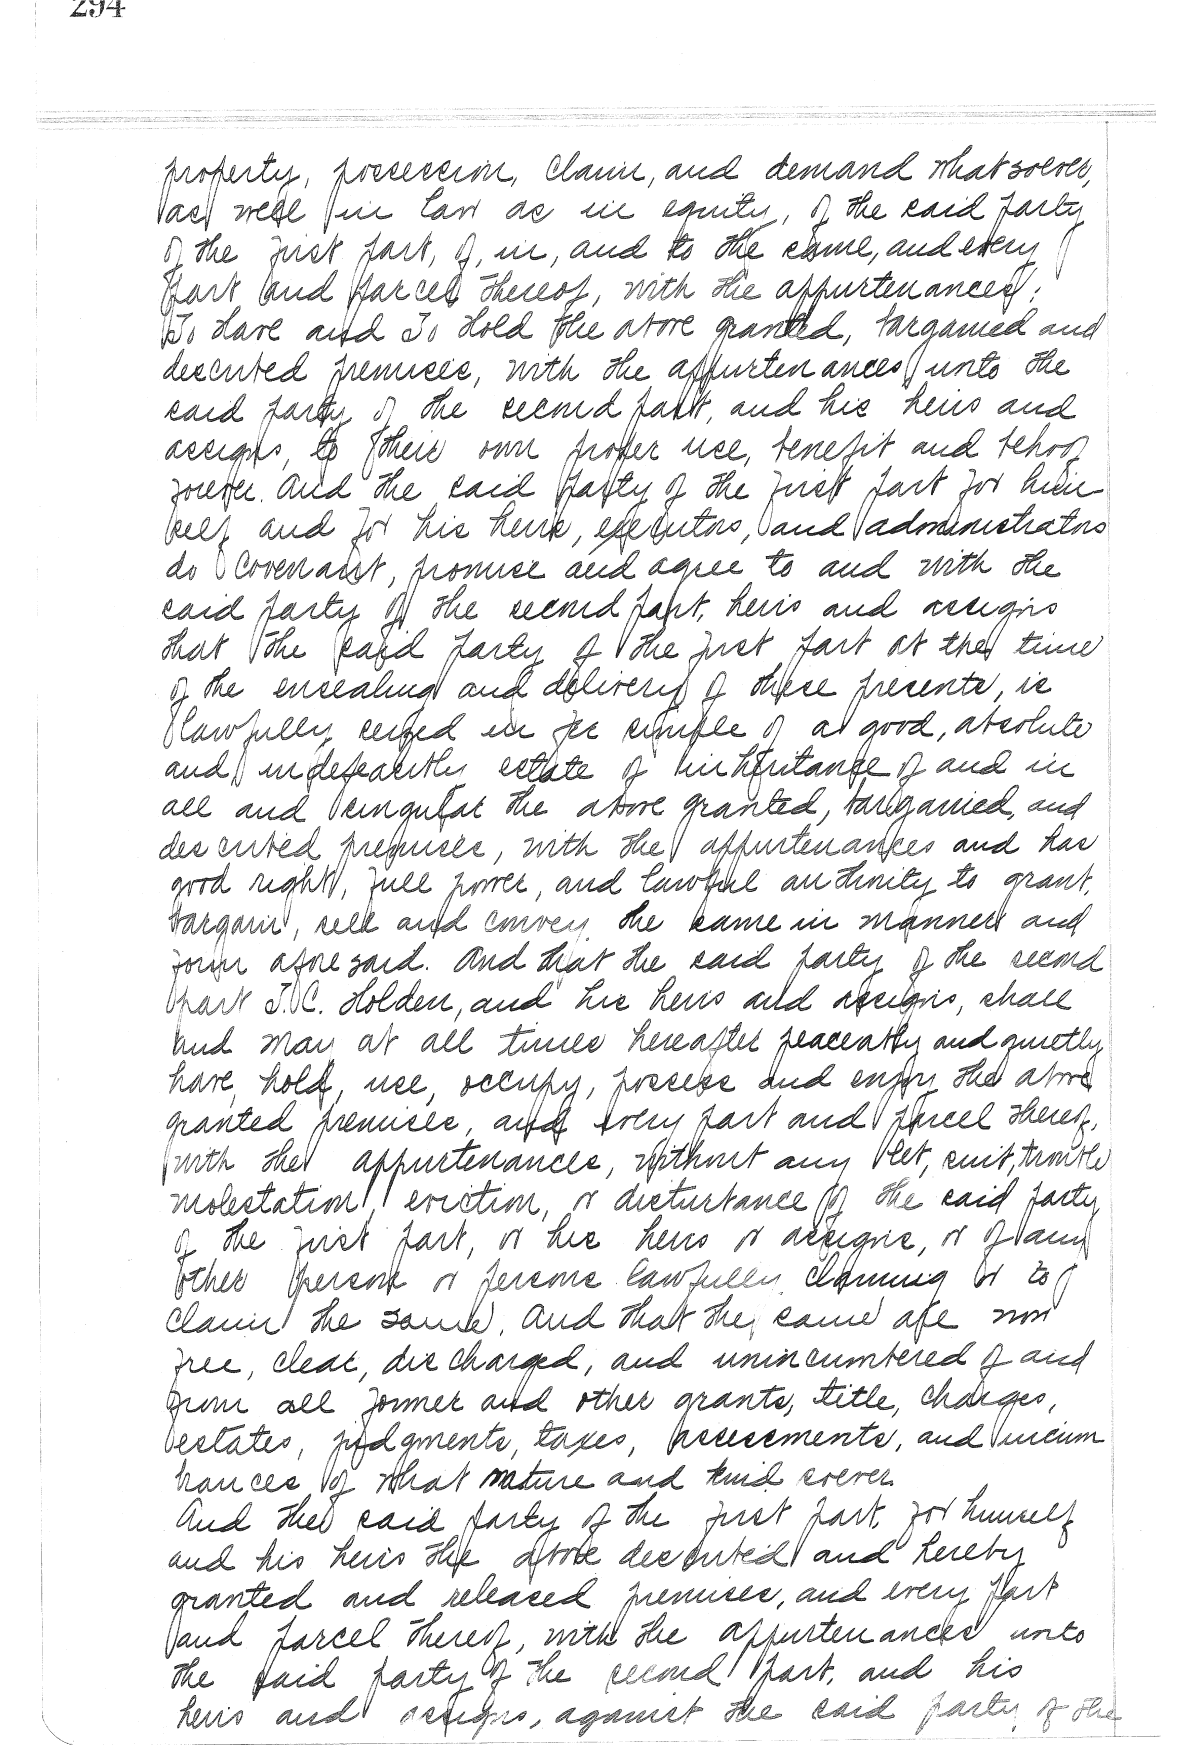 294
property, possession, claim, and demand whatsoever,
as well in law as in equity, of the said party
of the first part, of, in, and to the same, and every
part and parcel thereof, with the appurtenances;
To Have and To Hold the above granted, bargained and
described premises, with the appurtenances unto the
said party of the second part, and his heirs and
assigns, to their own proper use, benefit and behoof
forever. And the said party of the first part for him
self and for his heirs, executors, and administrators
do covenant, promise and agree to and with the
said party of the second part, heirs and assigns
that the said party of the first part at the time
of the ensealing and delivery of these presents, is
lawfully seized in fee simple of a good, absolute
and indefeasibly estate of inheritance of and in
all and singular the above granted, bargained, and
described premises, with the appurtenances and has
good right, full power, and lawful authority to grant,
bargain, sell and convey the same in manner and
form afore said. And that the said party of the second
part J.C. Holden, and his heirs and assigns, shall
and may at all times hereafter peaceably and quietly
have, hold, use, occupy, possess and enjoy the above
granted premises, and every part and parcel thereof,
with the appurtenances, without any let, suit, trouble
molestation, eviction, or disturbance of the said party
of the first part, or his heirs or assigns, or of any
other person or persons lawfully claiming or to
claim the same. And that the same are now
free, clear, discharged, and unincumbered of and
from all former and other grants, title, charges,
estates, judgments, taxes, assessments, and incum
brances of what nature and kind soever
And the said party of the first part, for himself
and his heirs the above described and hereby
granted and released premises, and every part
and parcel thereof, with the appurtenances unto
the said party of the second part, and his
heirs and assigns, against the said party of the